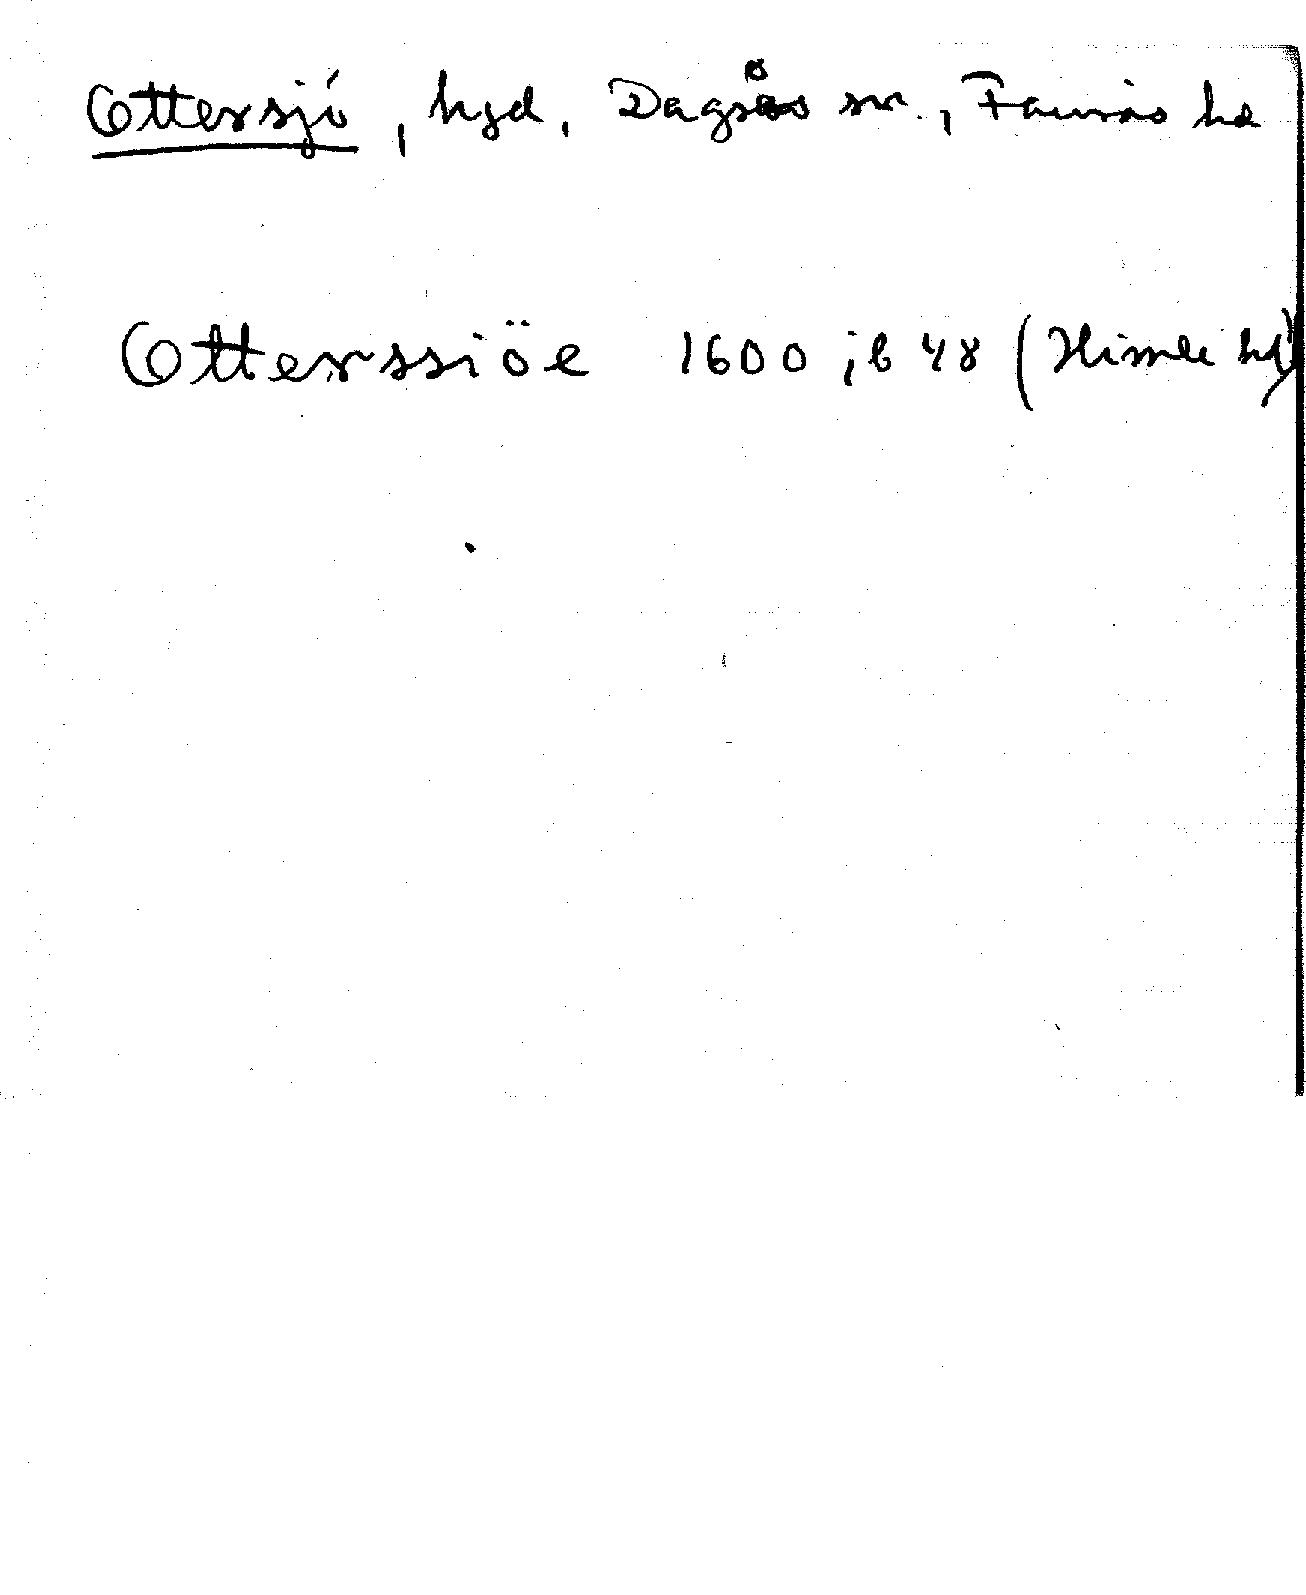 Ottersjö, hgd, Dagsås sn., Faurås hd
Otterssiöe 1600 jb 48 (Himle hd)